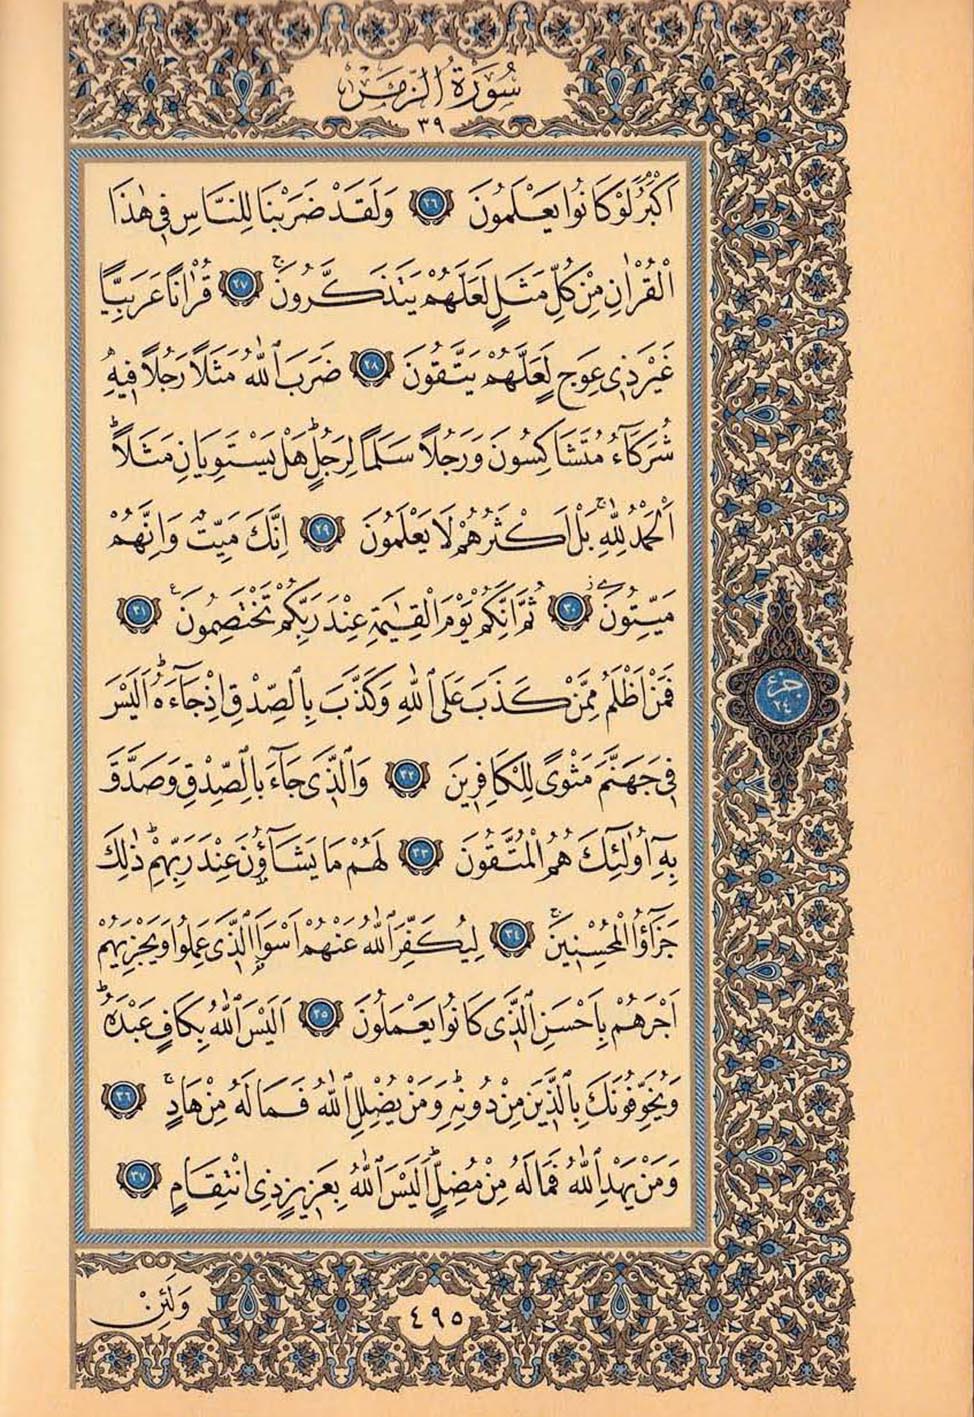 سُورَةُ الزُّمَرِ
٣٩
اَكْبَرُۢ لَوْ كَانُوا يَعْلَمُونَ ٢٦ وَلَقَدْ ضَرَبْنَا لِلنَّاسِ فٖي هٰذَا
الْقُرْاٰنِ مِنْ كُلِّ مَثَلٍ لَعَلَّهُمْ يَتَذَكَّرُونَۚ ٢٧ قُرْاٰنًا عَرَبِيًّا
غَيْرَ ذٖي عِوَجٍ لَعَلَّهُمْ يَتَّقُونَ ٢٨ ضَرَبَ اللّٰهُ مَثَلًا رَجُلًا فٖيهِ
شُرَكَٓاءُ مُتَشَاكِسُونَ وَرَجُلًا سَلَمًا لِرَجُلٍؕ هَلْ يَسْتَوِيَانِ مَثَلًاؕ
اَلْحَمْدُ لِلّٰهِۚ بَلْ اَكْثَرُهُمْ لَا يَعْلَمُونَ ٢٩ اِنَّكَ مَيِّتٌ وَاِنَّهُمْ
مَيِّتُونَؗ ٣٠ ثُمَّ اِنَّكُمْ يَوْمَ الْقِيٰمَةِ عِنْدَ رَبِّكُمْ تَخْتَصِمُونَࣖ ٣١
فَمَنْ اَظْلَمُ مِمَّنْ كَذَبَ عَلَى اللّٰهِ وَكَذَّبَ بِالصِّدْقِ اِذْ جَٓاءَهُؕ اَلَيْسَ
فٖي جَهَنَّمَ مَثْوًى لِلْكَافِرٖينَ ٣٢ وَالَّذٖي جَٓاءَ بِالصِّدْقِ وَصَدَّقَ
بِهٖٓ اُو۬لٰٓئِكَ هُمُ الْمُتَّقُونَ ٣٣ لَهُمْ مَا يَشَٓاؤُ۫نَ عِنْدَ رَبِّهِمْؕ ذٰلِكَ
جَزٰٓؤُا الْمُحْسِنٖينَۚ ٣٤ لِيُكَفِّرَ اللّٰهُ عَنْهُمْ اَسْوَاَ الَّذٖي عَمِلُوا وَيَجْزِيَهُمْ
اَجْرَهُمْ بِاَحْسَنِ الَّذٖي كَانُوا يَعْمَلُونَ ٣٥ اَلَيْسَ اللّٰهُ بِكَافٍ عَبْدَهُؕ
وَيُخَوِّفُونَكَ بِالَّذٖينَ مِنْ دُونِهٖؕ وَمَنْ يُضْلِلِ اللّٰهُ فَمَا لَهُ مِنْ هَادٍۚ ٣٦
وَمَنْ يَهْدِ اللّٰهُ فَمَا لَهُ مِنْ مُضِلٍّؕ اَلَيْسَ اللّٰهُ بِعَزٖيزٍ ذِي انْتِقَامٍ ٣٧
جزء
٢٤
٤٩٥
وَلَئِنْ